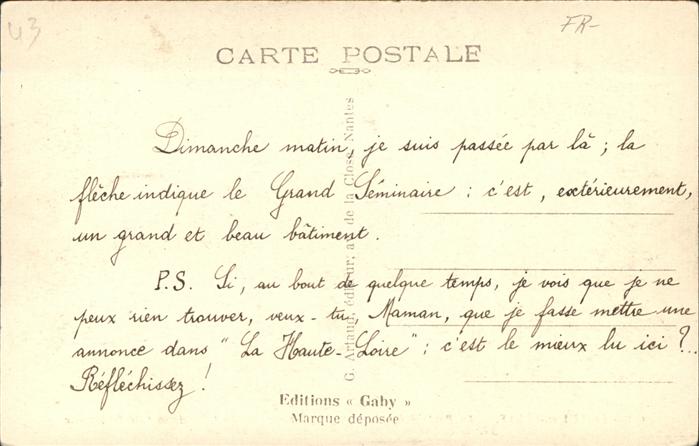 43
FR-
CARTE POSTALE
Dimanche matin, je suis passée par là ; la
flèche indique le Grand Séminaire : c'est, extérieurement,
un grand et beau bâtiment.
P.S. Si, au bout de quelque temps, je vois que je ne
peux rien trouver, veux-tu, Maman, que je fasse mettre une
annonce dans "La Haute-Loire" ; c'est le mieux lu ici ?..
Réfléchissez !
G. Artaud, éditeur, av. de la Close, Nantes
Editions « Gaby »
Marque déposée